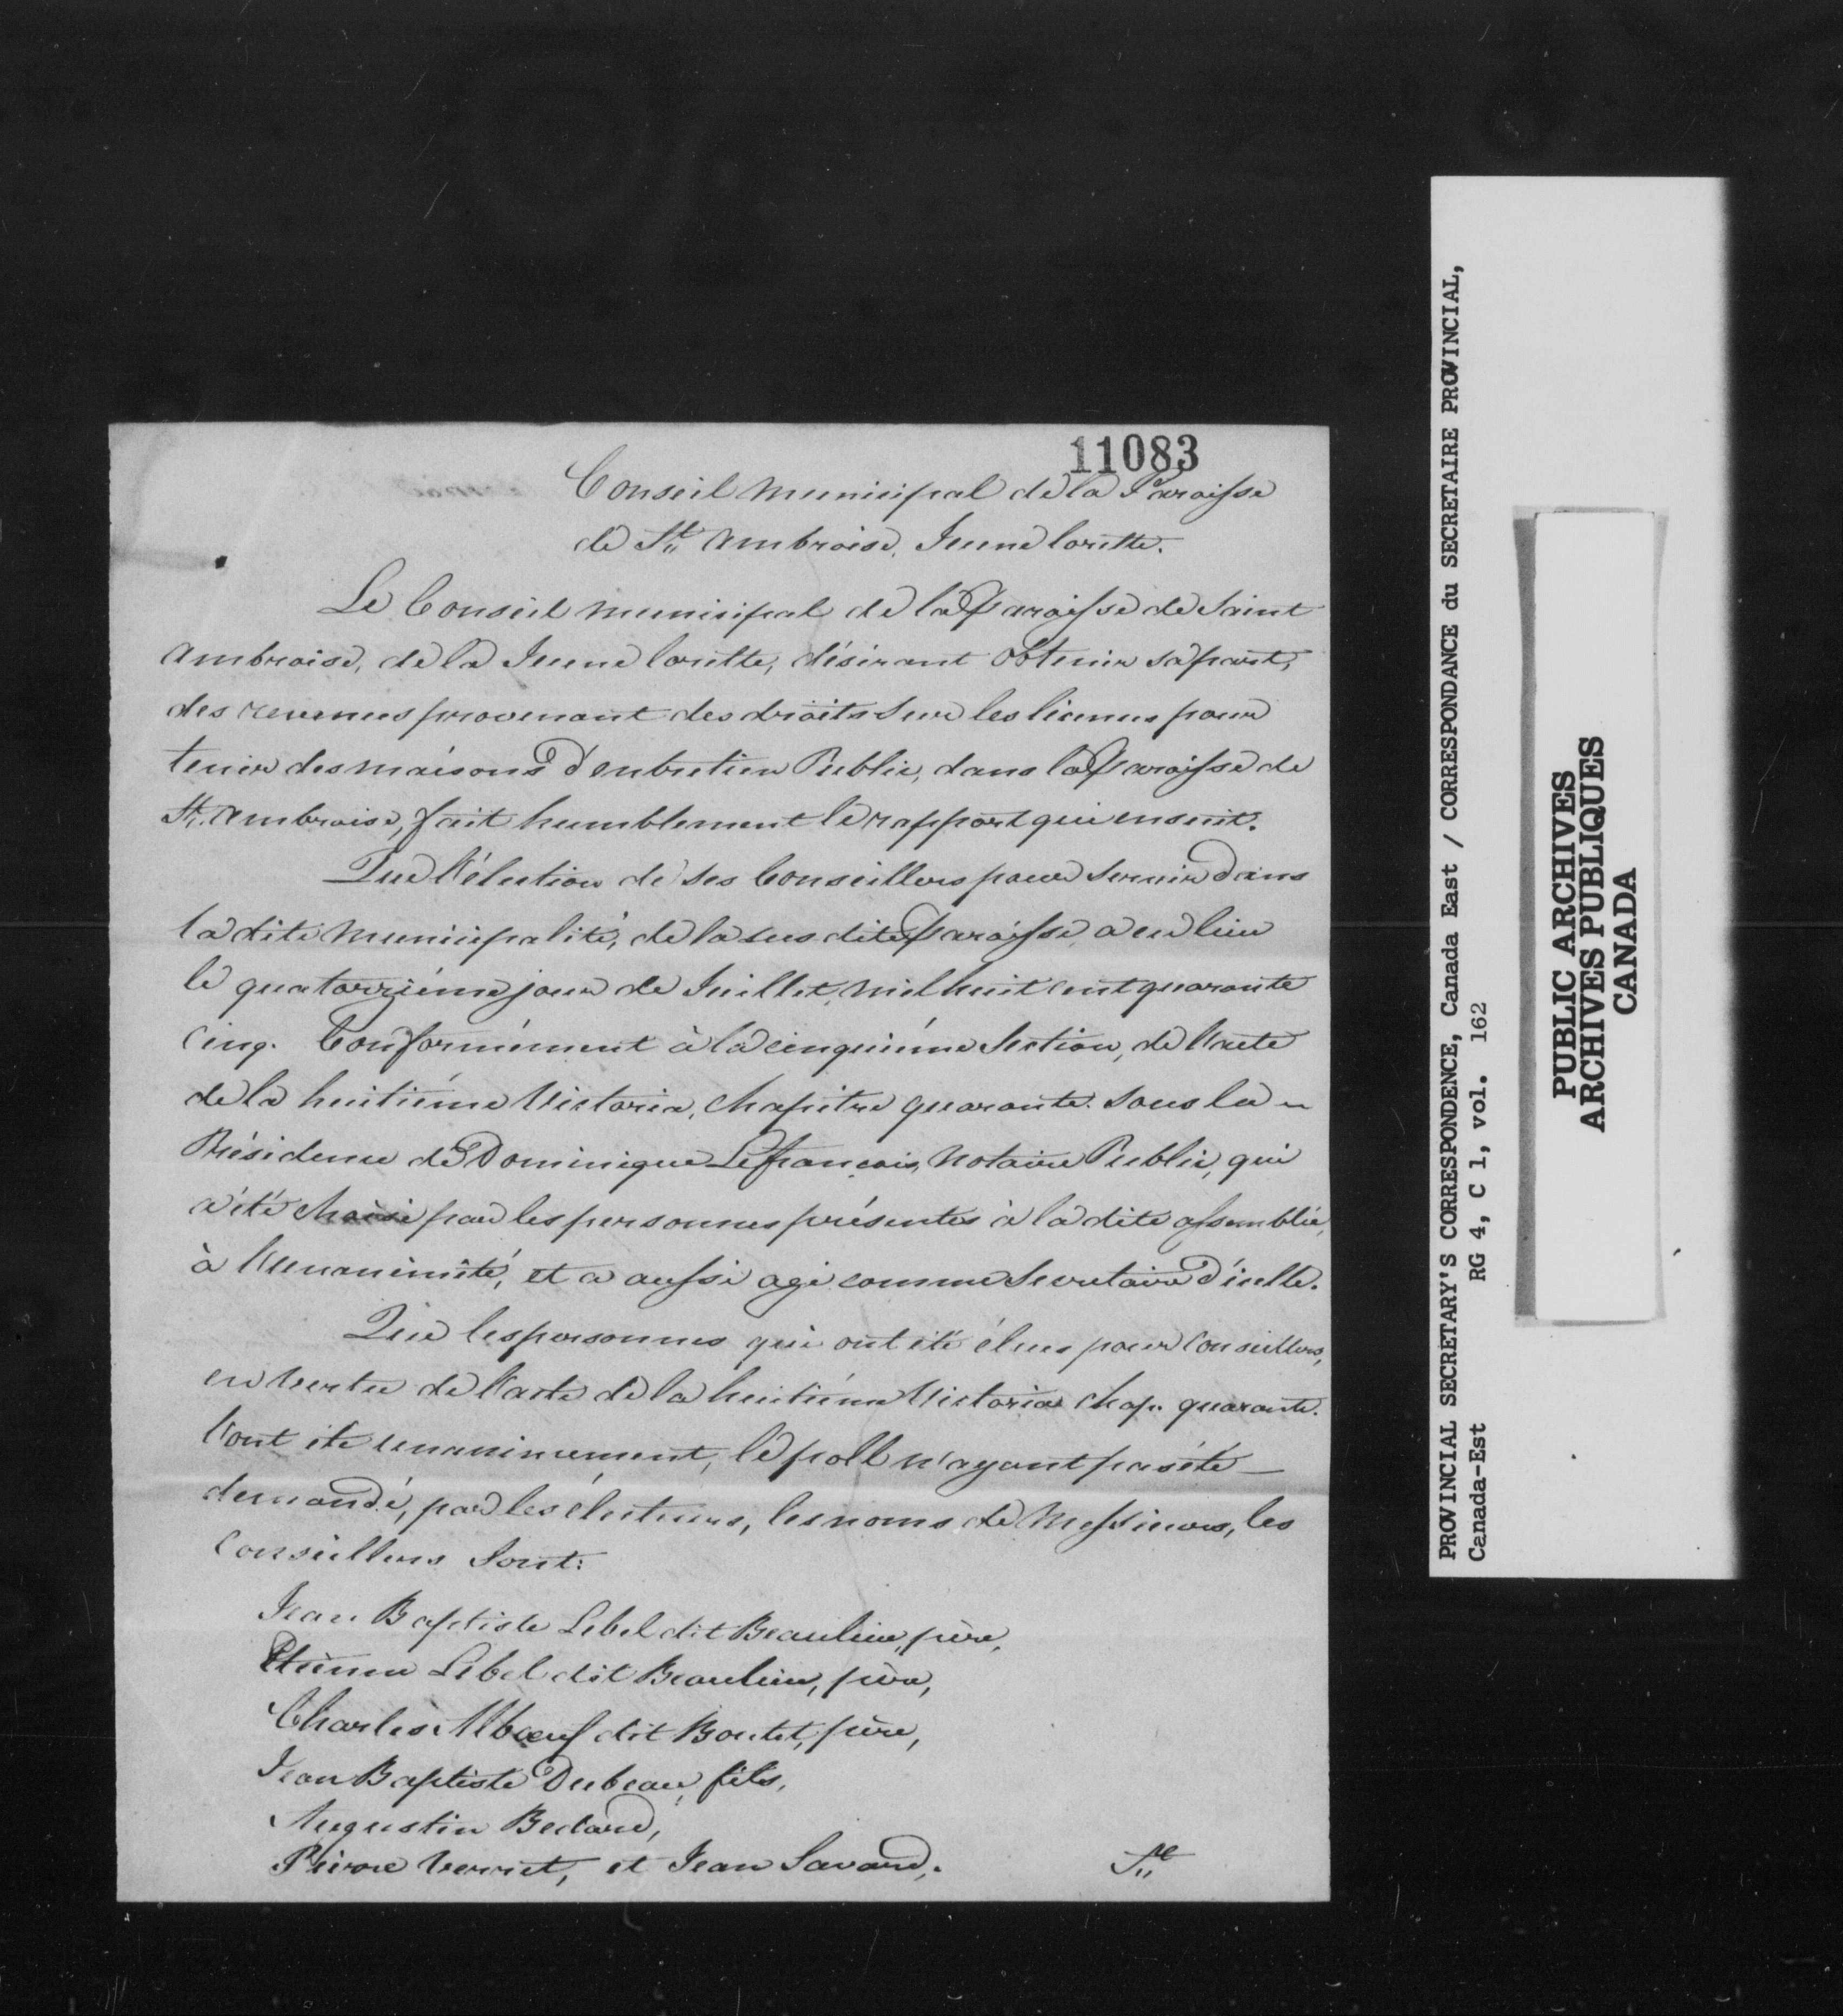 11083
Conseil municipal de la Paroisse
de St. Ambroise, Jeune lorette.
Le Conseil municipal de la Paroisse de Saint
Ambroise, de la Jeune lorette, désirant obtenir sa part,
des revenus provenant des droits sur les licenses pour
tenir des maisons D'entretien Public, dans la Paroisse de
St. Ambroise, fait humblement le rapport qui ensuit.
Que l'élection de ses Conseillers pour servir Dans
la dite municipalité, de la susdite Paroisse, a eu lieu
le quatorzième jour de Juillet, mil huit cent quarante
cinq. Conformément à la cinquième Section, de l'acte
de la huitième Victoria, chapitre quarante. sous la
Présidence de Dominique Lefrançois, Notaire Public, qui
a été choisi par les personnes présentes à la dite assemblée,
à l'unanimité, et a aussi agi comme Secretaire D'icelle.
Que les personnes qui ont été élues pour Conseillers,
en vertu de l'acte de la huitième Victoria chap. quarante.
l'ont été unanimement, le poll n'ayant pas été —
demandé, par les électeurs, les noms de Messieurs, les
Conseillers sont:
Jean Baptiste Lebel dit Beaulieu, père,
Etienne Lebel dit Beaulieu, père,
Charles Alboeuf dit Boutet, père,
Jean Baptiste Dubeau, fils,
Augustin Bedard,
Pierre Verret, et Jean Savard,.
PROVINCIAL SECRETARY'S CORRESPONDENCE, Canada East / CORRESPONDANCE du SECRETAIRE PROVINCIAL,
Canada-Est RG 4, C 1, vol. 162
PUBLIC ARCHIVES
ARCHIVES PUBLIQUES
CANADA